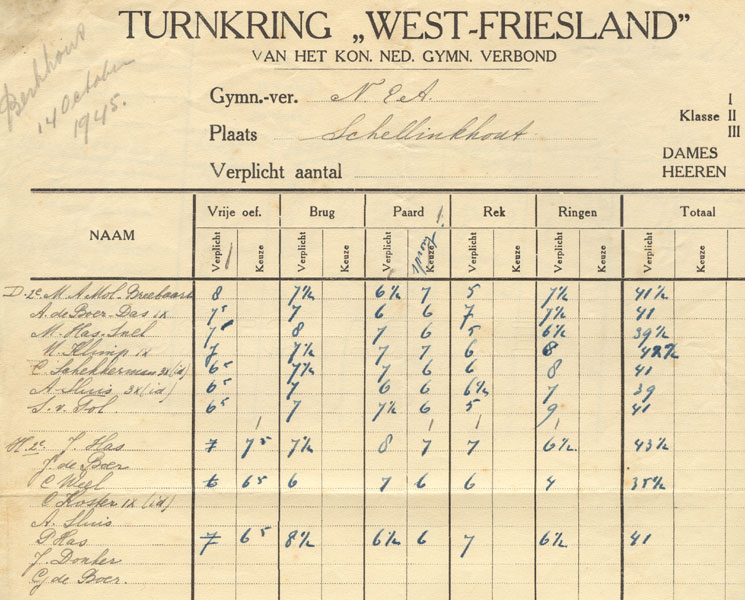 TURNKRING „WEST-FRIESLAND”
VAN HET KON. NED. GYMN. VERBOND
Berkhout
14 October
1945.
Gymn.-ver. N.E.A.
Plaats Schellinkhout.
Verplicht aantal
Klasse I
II
III
DAMES
HEEREN
NAAM Vrije oef. Brug Paard Rek Ringen Totaal
Verplicht Keuze Verplicht Keuze Verplicht Keuze Verplicht Keuze Verplicht Keuze Verplicht
D. 2e M. A Mol-Breebaart 8 7½ 6½ 7 5 7½ 41½
A. de Boer-Das 1x 7⁵ 7 6 6 7 7½ 41
M. Has-Snel 7⁵ 8 7 6 5 6½ 39½
M. Klimp 1x 7 7½ 7 7 6 8 42½
C. Schekkerman 3x (id) 6⁵ 7½ 7 6 6 8 41
A. Sluis 3x (id) 6⁵ 7 6 6 6½ 7 39
S. v. Tol 6⁵ 7 7½ 6 5 9 41
H. 2e J. Has 7 7⁵ 7½ 8 7 7 6½ 43½
J. de Boer
C Weel 6 6⁵ 6 7 6 6 4 35½
C Koster 1x (id)
A. Sluis
D Has 7 6⁵ 8½ 6½ 6 7 6½ 41
J. Donker
Cj de Boer.